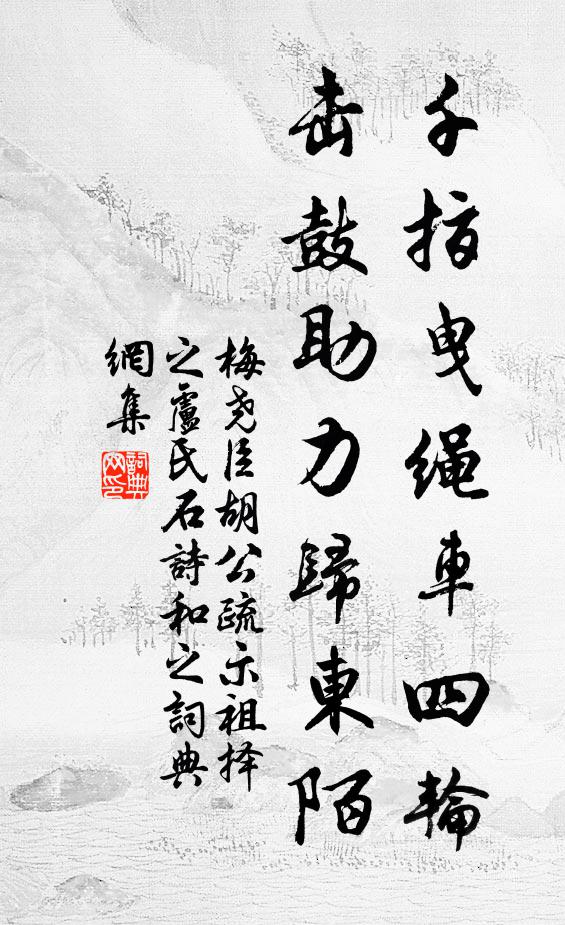 千指曳绳车四輪
击鼓助力歸東陌
梅尧臣胡公疏示祖择
之盧氏石詩和之詞典
網集
詞典
网印